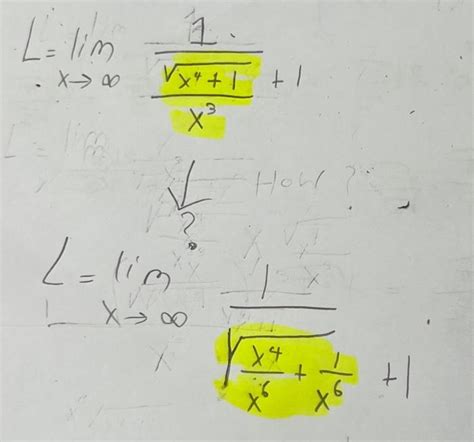 L = lim x→∞ 1 / (√(x⁴ + 1) / x³ + 1)
How?
?
L = lim x→∞ 1 / (√(x⁴/x⁶ + 1/x⁶) + 1)